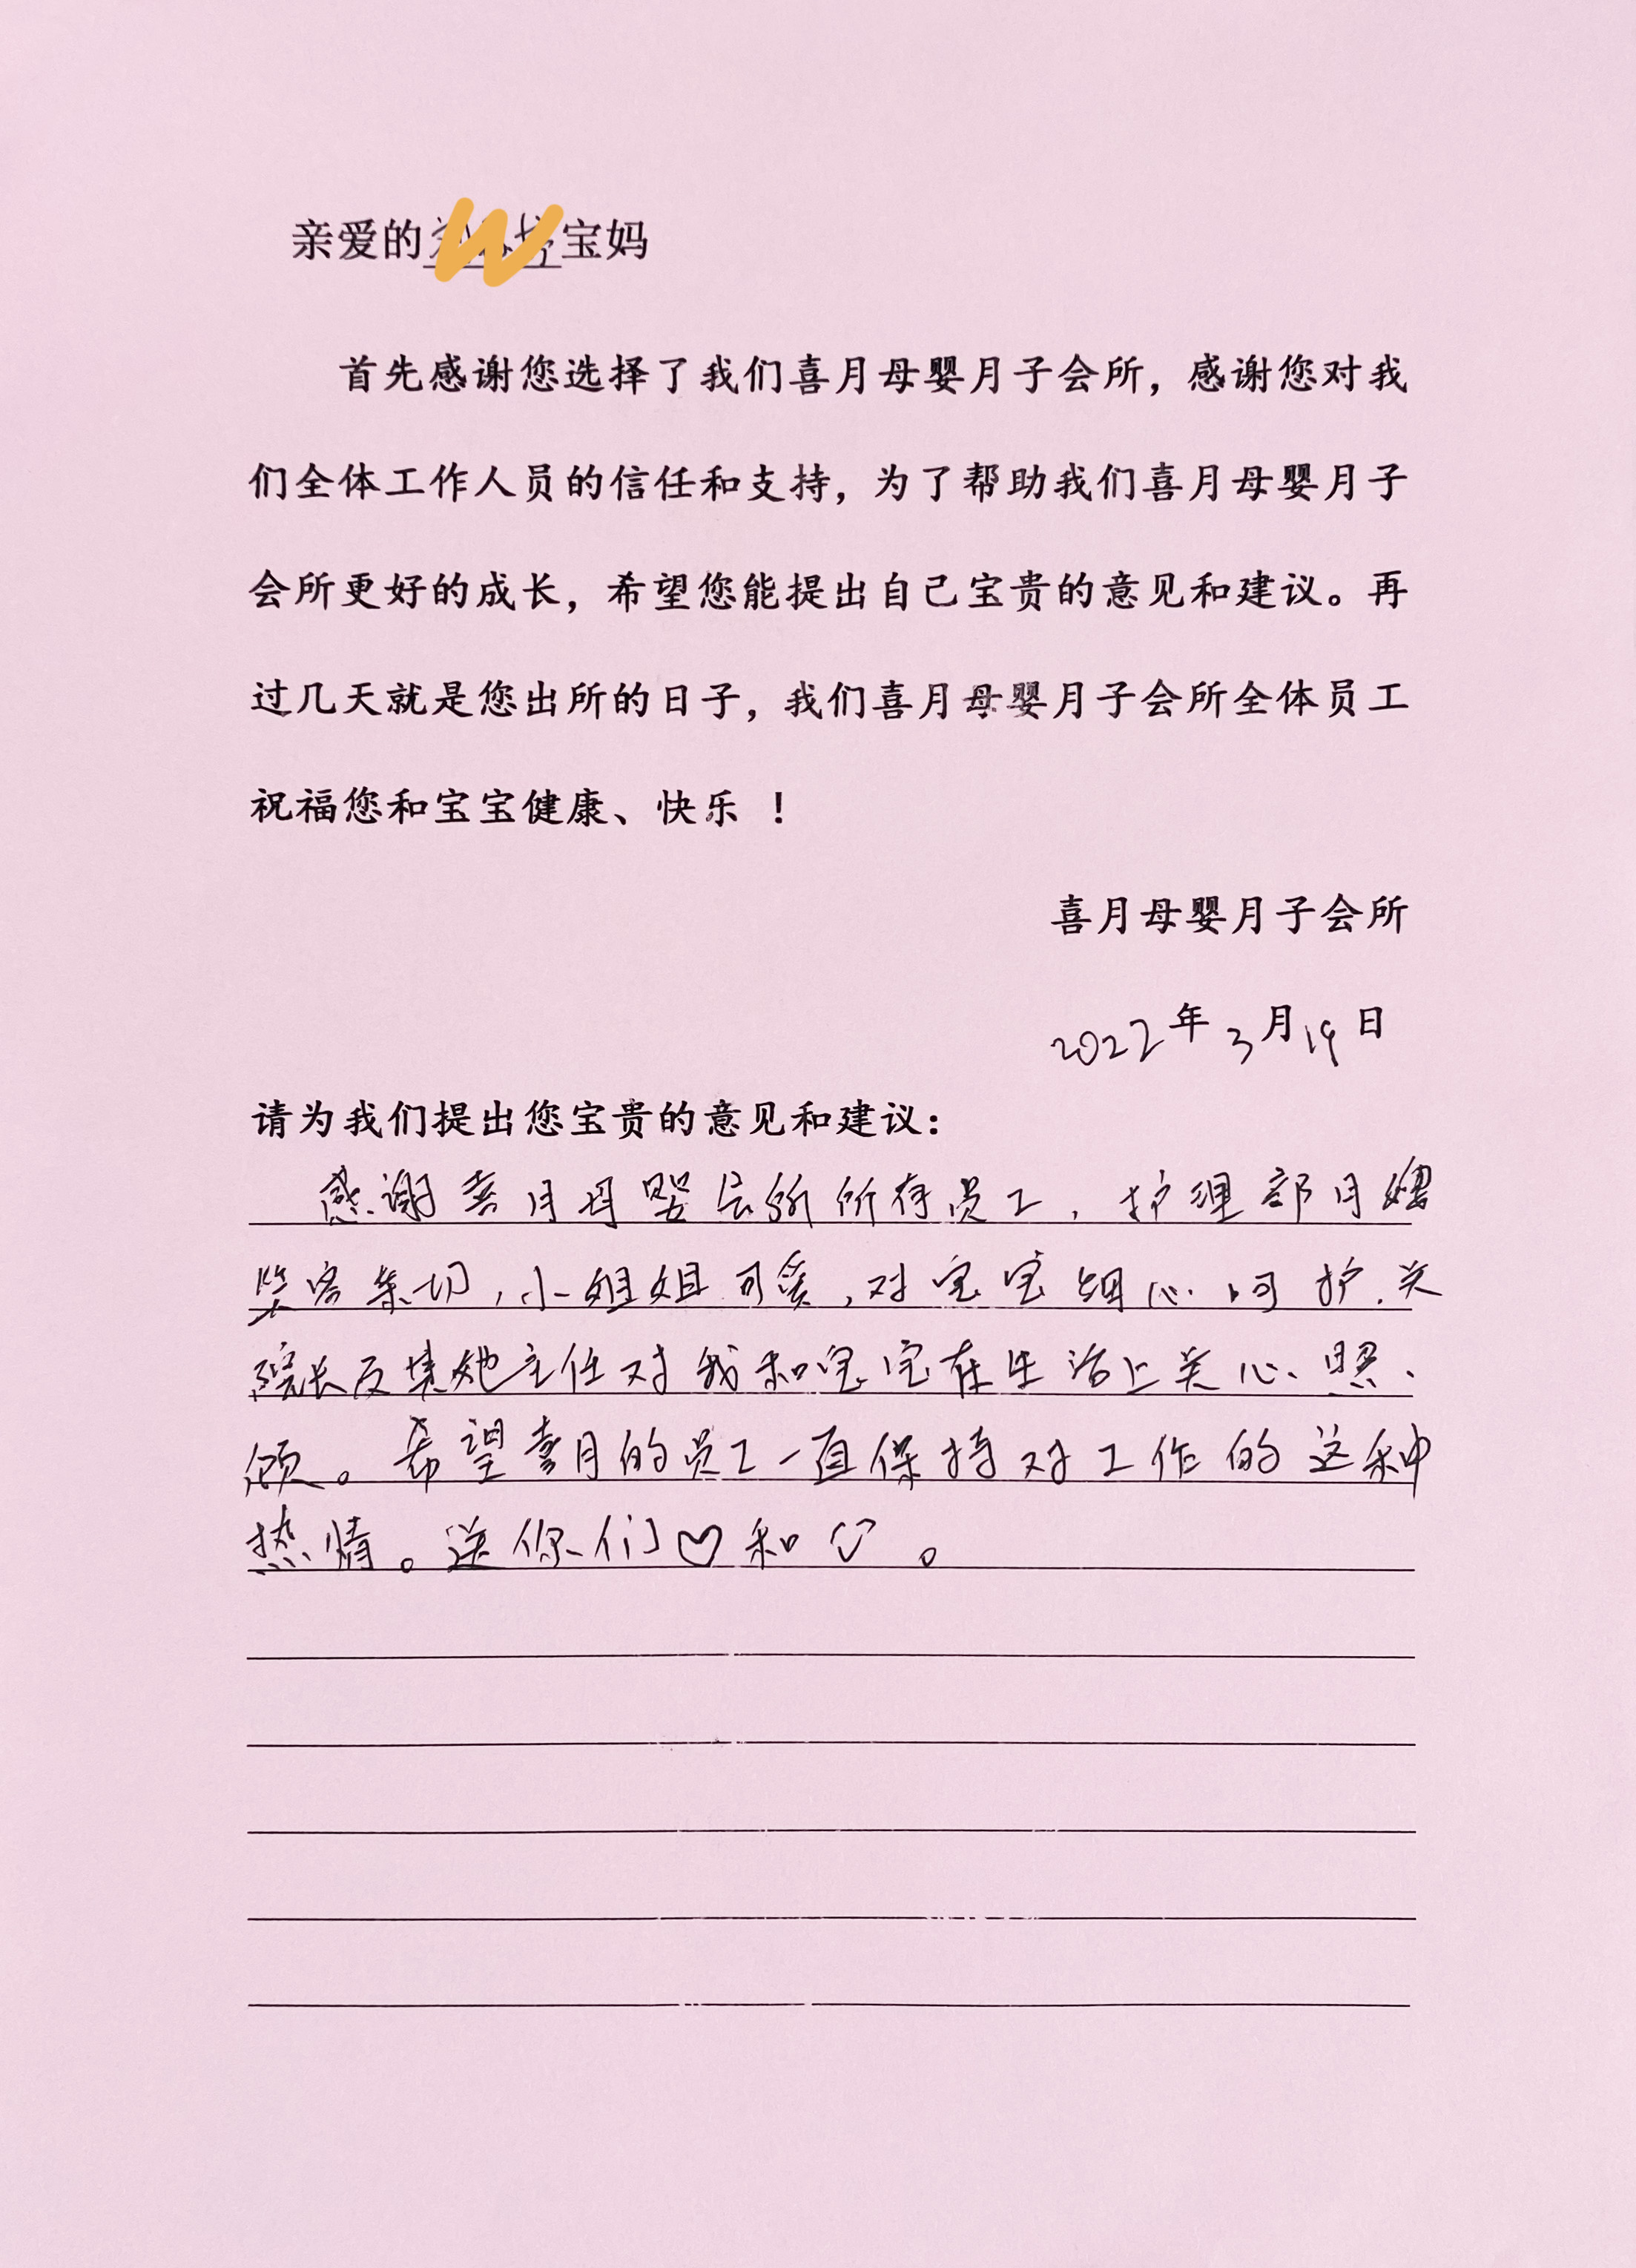 亲爱的宝妈
首先感谢您选择了我们喜月母婴月子会所，感谢您对我
们全体工作人员的信任和支持，为了帮助我们喜月母婴月子
会所更好的成长，希望您能提出自己宝贵的意见和建议。再
过几天就是您出所的日子，我们喜月母婴月子会所全体员工
祝福您和宝宝健康、快乐 ！
喜月母婴月子会所
2022年3月19日
请为我们提出您宝贵的意见和建议：
感谢喜月母婴会所所有员工，护理部月嫂
笑容亲切，小姐姐可爱，对宝宝细心呵护.关
院长及其她主任对我和宝宝在生活上关心、照、
顾。希望喜月的员工一直保持对工作的这种
热情。送你们♡和。